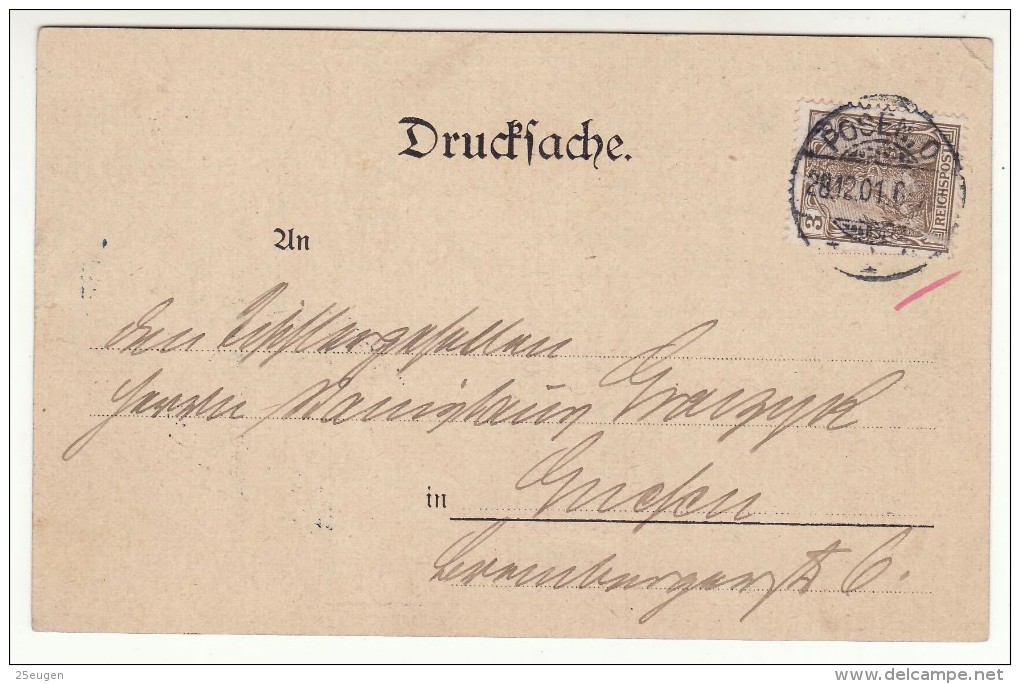 Drucksache.
POSEN. O
28.12.01.6
3
REICHSPOST
An
den Tischlergesellen
Herrn Stanislaus Graczyk
in Gnesen
Brombergerstr 6.
25eugen
www.delcampe.net